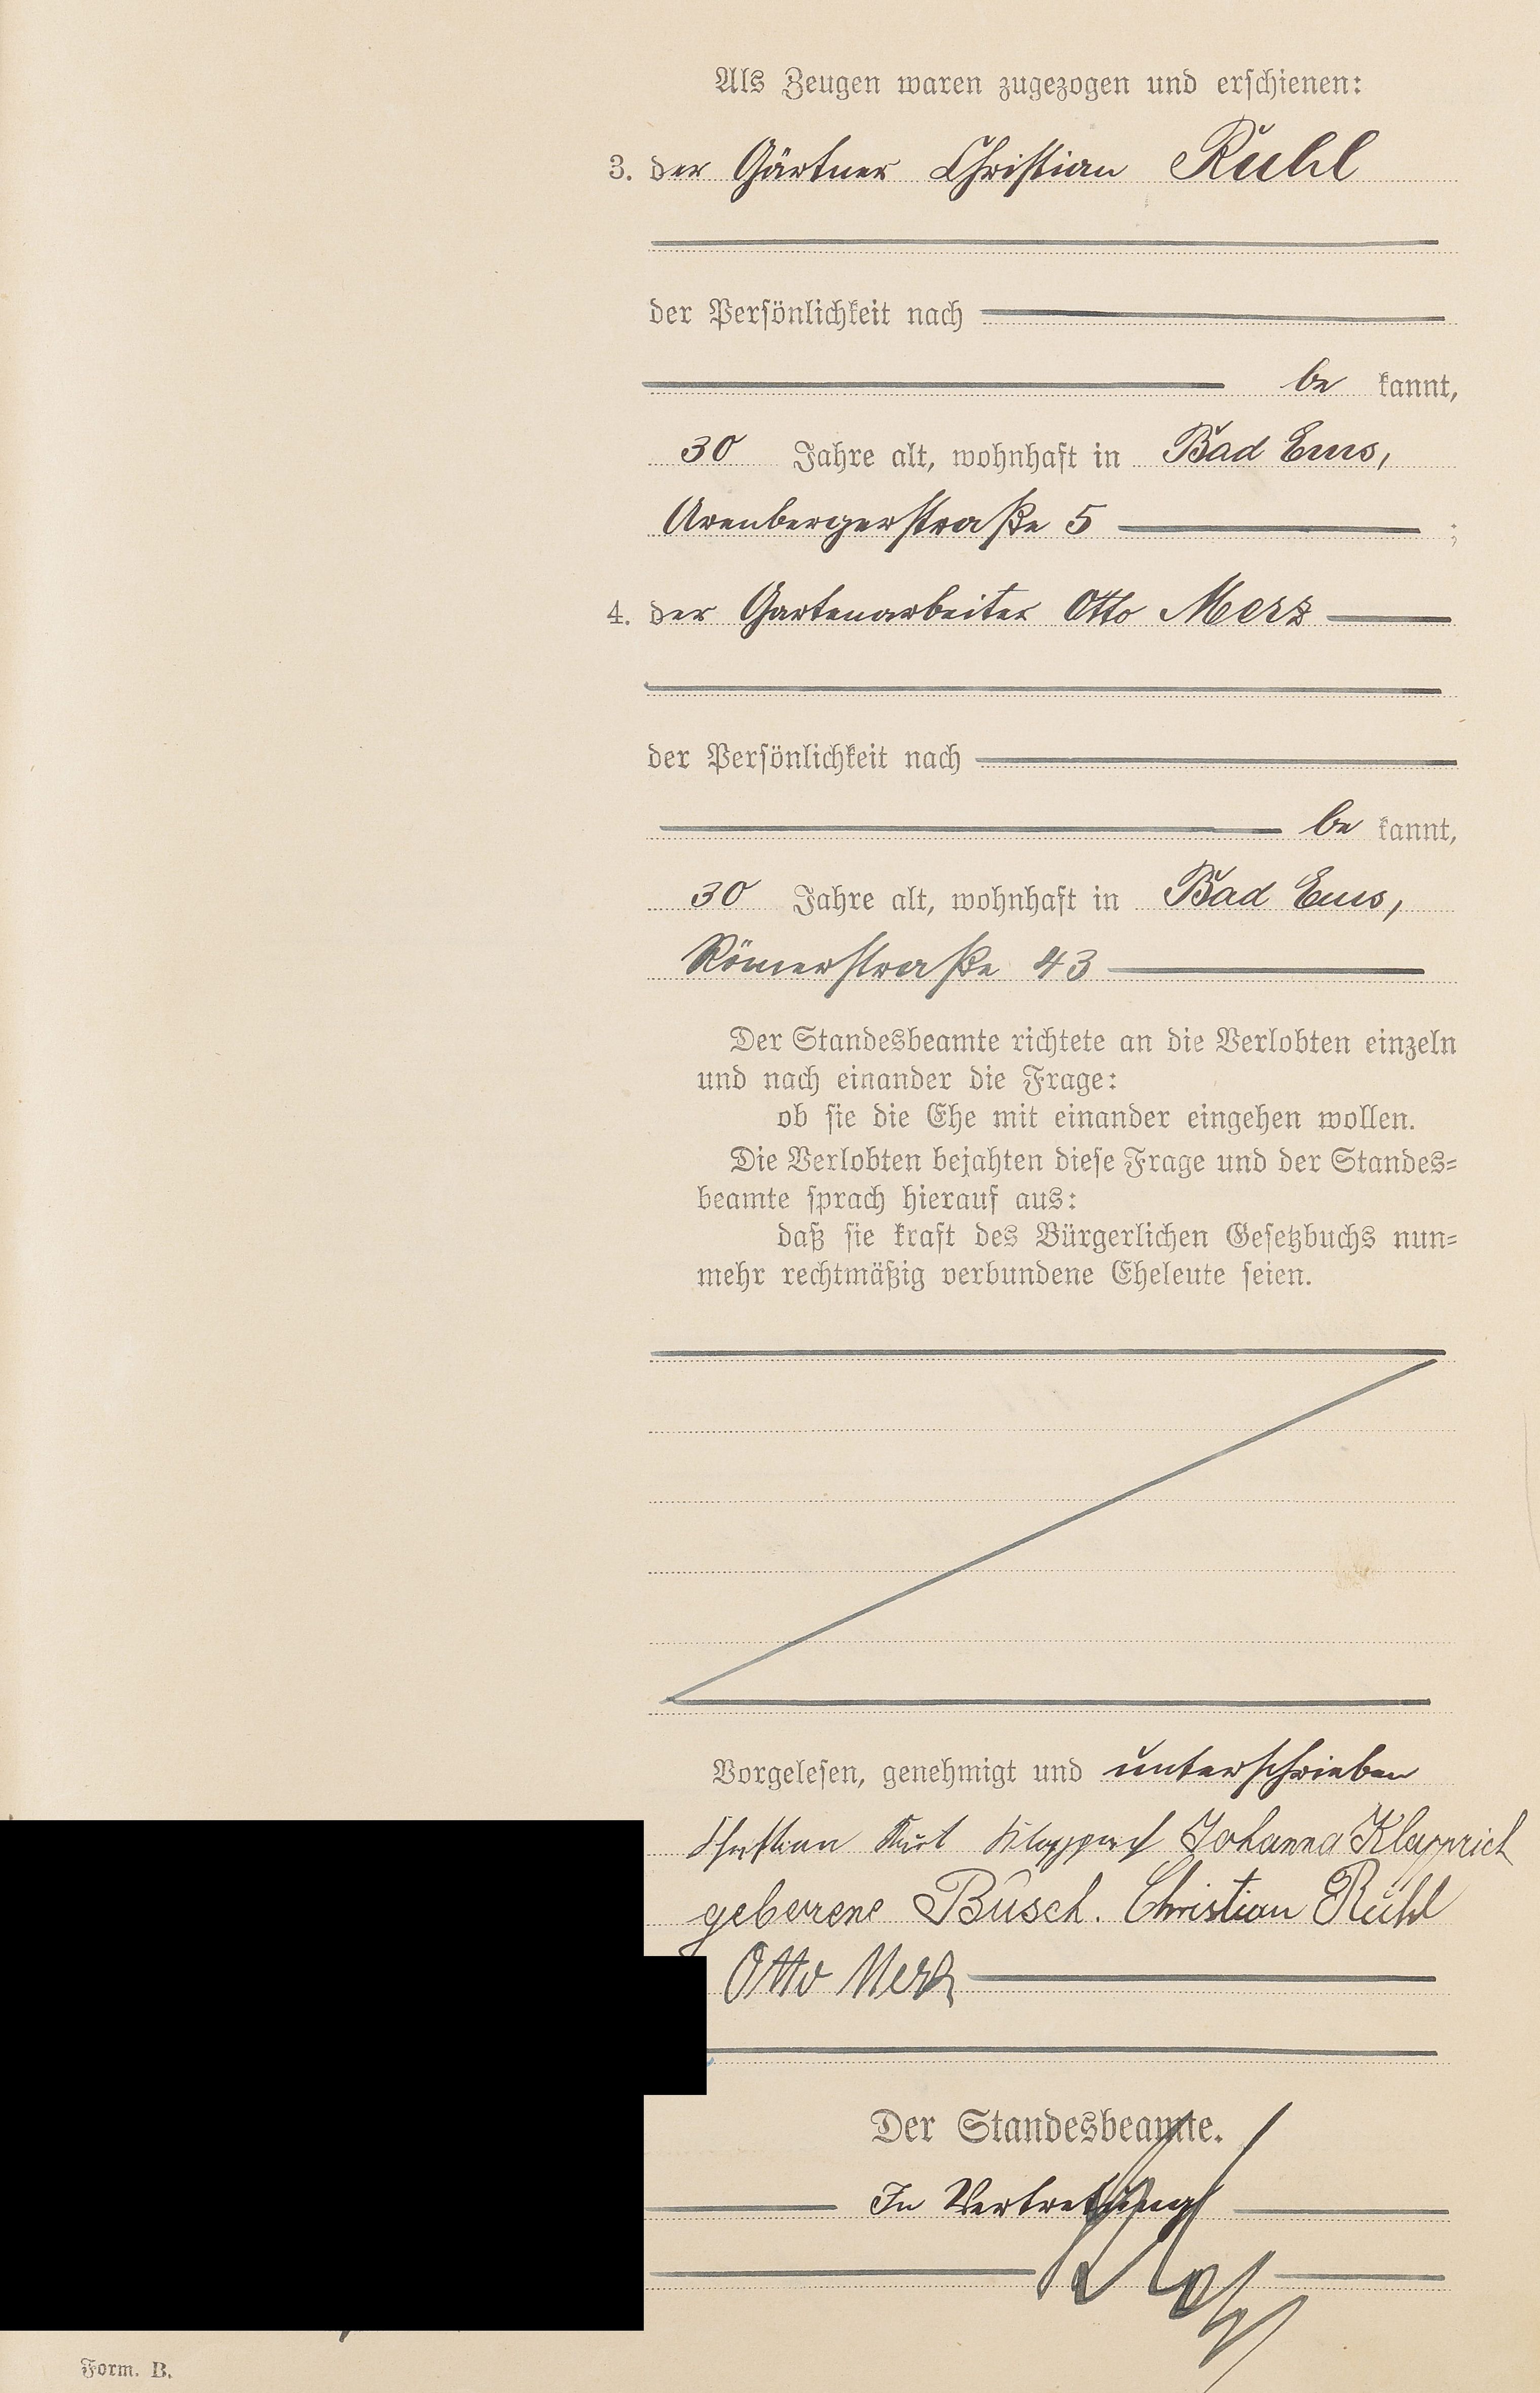 Als Zeugen waren zugezogen und erschienen:
3. der Gärtner Christian Ruhl
der Persönlichkeit nach
be kannt,
30 Jahre alt, wohnhaft in Bad Ems,
Arenbergerstraße 5 ;
4. der Gartenarbeiter Otto Merz
der Persönlichkeit nach
be kannt,
30 Jahre alt, wohnhaft in Bad Ems,
Römerstraße 43
Der Standesbeamte richtete an die Verlobten einzeln
und nach einander die Frage:
ob sie die Ehe mit einander eingehen wollen.
Die Verlobten bejahten diese Frage und der Standes=
beamte sprach hierauf aus:
daß sie kraft des Bürgerlichen Gesetzbuchs nun=
mehr rechtmäßig verbundene Eheleute seien.
Vorgelesen, genehmigt und unterschrieben
Christian Kurt Klapprich Johanna Klapprich
geborene Busch. Christian Ruhl
Otto Merz
Der Standesbeamte.
In Vertretung
Form. B.